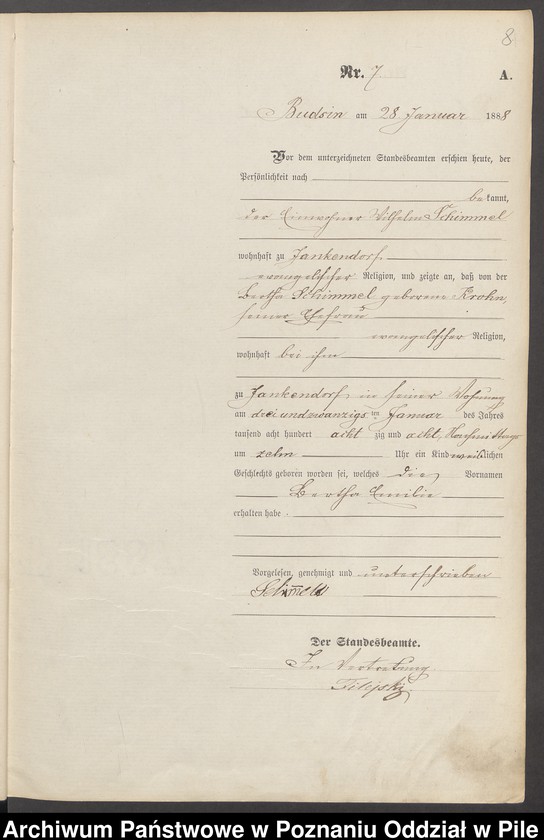 8
Nr. 7
A.
Budsin am 28 Januar 1888
Vor dem unterzeichneten Standesbeamten erschien heute, der
Persönlichkeit nach
bekannt,
der Einwohner Wilhelm Schimmel
wohnhaft zu Jankendorf
evangelischer Religion, und zeigte an, daß von der
Bertha Schimmel geborene Krohn,
seiner Ehefrau
evangelischer Religion,
wohnhaft bei ihm
zu Jankendorf in seiner Wohnung
am dreiundzwanzigsten Januar des Jahres
tausend acht hundert achtzig und acht, Nachmittags
um zehn Uhr ein Kind weiblichen
Geschlechts geboren worden sei, welches die Vornamen
Bertha Emilie
erhalten habe.
Vorgelesen, genehmigt und unterschrieben
Schimmel
Der Standesbeamte.
In Vertretung
Archiwum Państwowe w Poznaniu Oddział w Pile